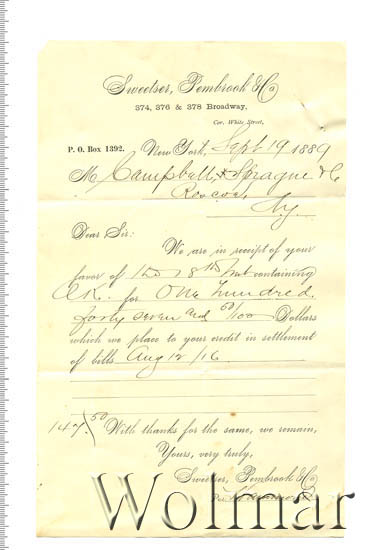 Sweetser, Pembrook & Co
374, 376 & 378 Broadway,
Cor. White Street,
P. O. Box 1392. New York, Sept 19 1889
M Campbell, Sprague & Co
Roscoe,
Ny.
Dear Sir:
We are in receipt of your
favor of inst containing
Ck. for One hundred
forty seven and 50/100 Dollars
which we place to your credit in settlement
of bills Aug 12/16
147.50 With thanks for the same, we remain,
Yours, very truly,
Sweetser, Pembrook & Co
Wolmar